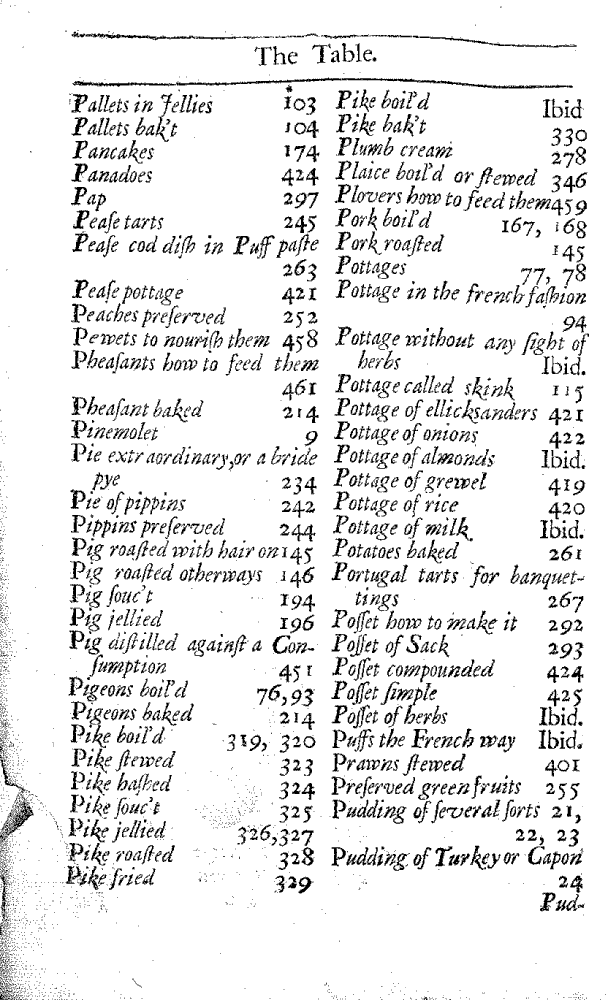 The Table.
Pallets in Jellies 103
Pallets bak't 104
Pancakes 174
Panadoes 424
Pap 297
Pease tarts 245
Pease cod dish in Puff paste
263
Pease pottage 421
Peaches preserved 252
Pewets to nourish them 458
Pheasants how to feed them
461
Pheasant baked 214
Pinemolet 9
Pie extraordinary, or a bride
pye 234
Pie of pippins 242
Pippins preserved 244
Pig roasted with hair on 145
Pig roasted otherways 146
Pig souc't 194
Pig jellied 196
Pig distilled against a Con-
sumption 451
Pigeons boil'd 76,93
Pigeons baked 214
Pike boil'd 319, 320
Pike stewed 323
Pike hashed 324
Pike souc't 325
Pike jellied 326,327
Pike roasted 328
Pike fried 329
Pike boil'd Ibid
Pike bak't 330
Plumb cream 278
Plaice boil'd or stewed 346
Plovers how to feed them 459
Pork boil'd 167, 168
Pork roasted 145
Pottages 77, 78
Pottage in the french fashion
94
Pottage without any sight of
herbs Ibid.
Pottage called skink 115
Pottage of ellicksanders 421
Pottage of onions 422
Pottage of almonds Ibid.
Pottage of grewel 419
Pottage of rice 420
Pottage of milk Ibid.
Potatoes baked 261
Portugal tarts for banquet-
tings 267
Posset how to make it 292
Posset of Sack 293
Posset compounded 424
Posset simple 425
Posset of herbs Ibid.
Puffs the French way Ibid.
Prawns stewed 401
Preserved green fruits 255
Pudding of several sorts 21,
22, 23
Pudding of Turkey or Capon
24
Pud-